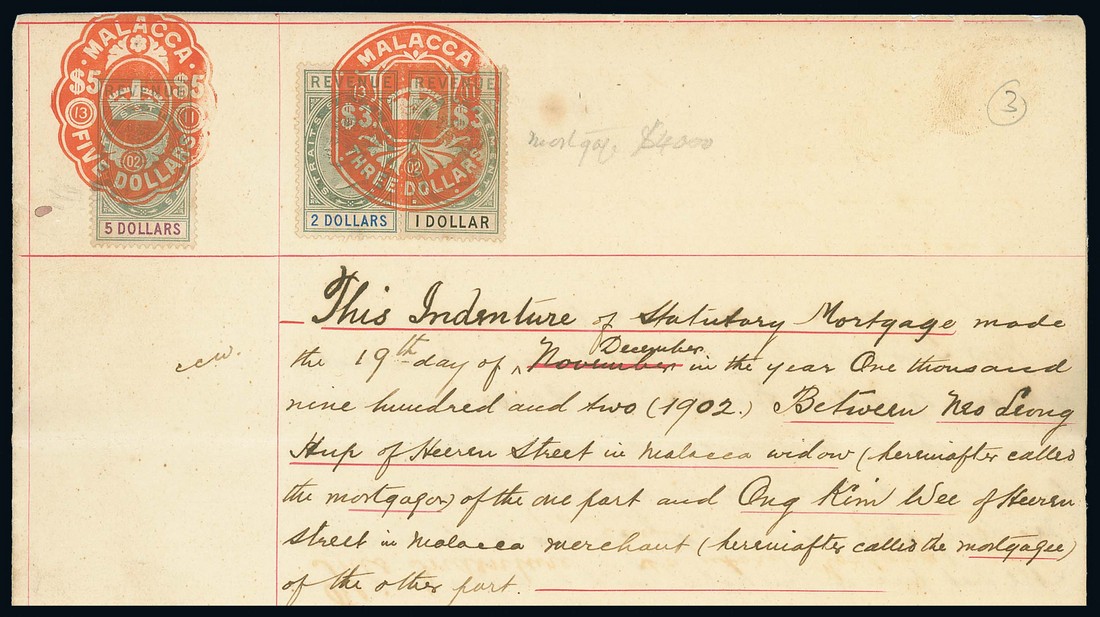 MALACCA
$5 $5
REVENUE
13 02 11
FIVE DOLLARS
5 DOLLARS
MALACCA
REVENUE REVENUE
13 11
$3. $3
STRAITS
02
THREE DOLLARS
2 DOLLARS 1 DOLLAR
mortgage $4000
3
This Indenture of Statutory Mortgage made
the 19th day of ^ November December in the year One thousand
nine hundred and two (1902.) Between Neo Leong
Hup of Heeren Street in Malacca widow (hereinafter called
the mortgagor) of the one part and Ong Kim Wee of Heeren
Street in Malacca merchant (hereinafter called the mortgagee)
of the other part.